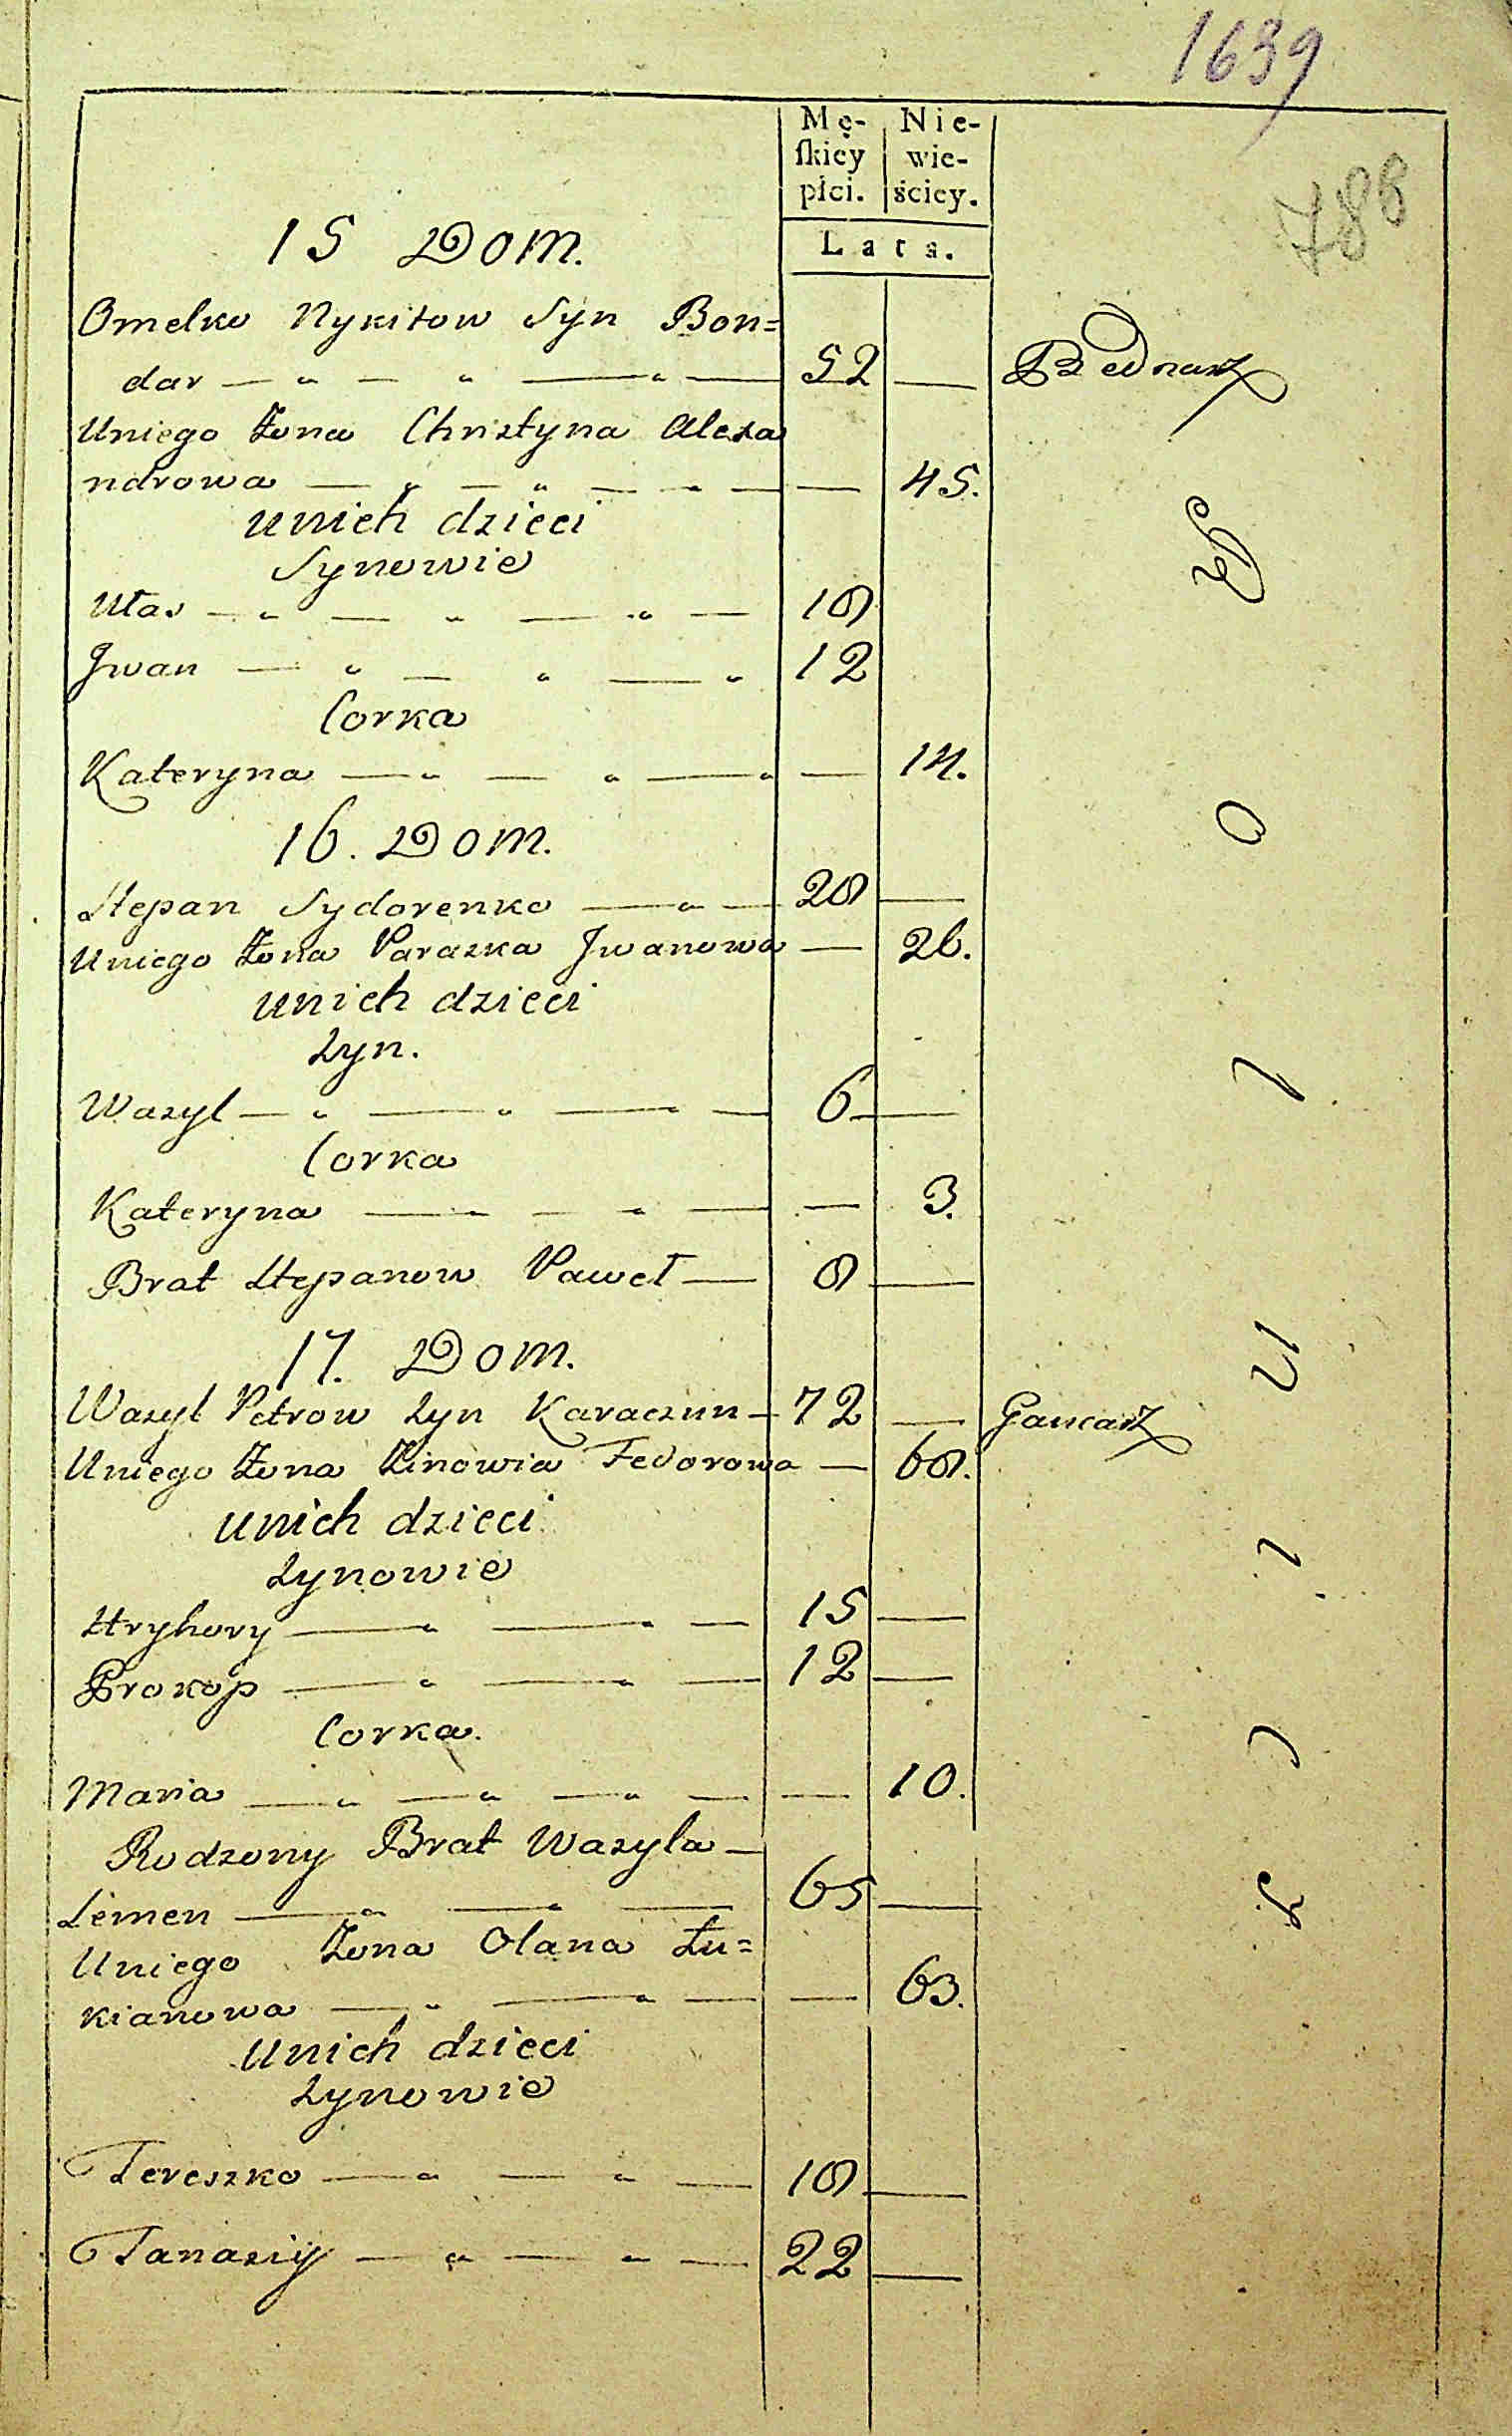 1639
788
Mę- Nie-
ſkiey wie-
płci. ściey.
Lata.
15 Dom.
Omelko Nykitow Syn Bon=
dar — „ — „ — „ — 52 — Bednarz
Uniego Żona Chrystyna Alexa
ndrowa — „ — „ — — — — 45.
unich dzieci
Synowie
Ułas — „ — „ — „ — 18
Jwan — „ — „ — „ 12
Corka
Kateryna — „ — „ — „ — 14.
16. Dom.
Stepan Sydorenko — „ — 28 —
Uniego Żona Paraska Jwanowa — 26.
unich dzieci
Syn.
Wasyl — „ — „ — — 6 —
Corka
Kateryna — „ — „ — — 3.
Brat Stepanow Paweł — 8 —
17. Dom.
Wasyl Petrow Syn Karaczun — 72 — Gancarz
Uniego Żona Zinowia Fedorowa — 68.
unich dzieci
Synowie
Hryhory — „ — „ — 15 —
Prokop — „ — „ — 12 —
Corka.
Maria — „ — „ — „ — — 10.
Rodzony Brat Wasyla —
Semen — „ — „ — 65 —
Uniego Żona Olana Łu=
kianowa — „ — „ — — 63.
unich dzieci
Synowie
Tereszko — „ — „ — 18 —
Tanasiy — „ — „ — 22 —